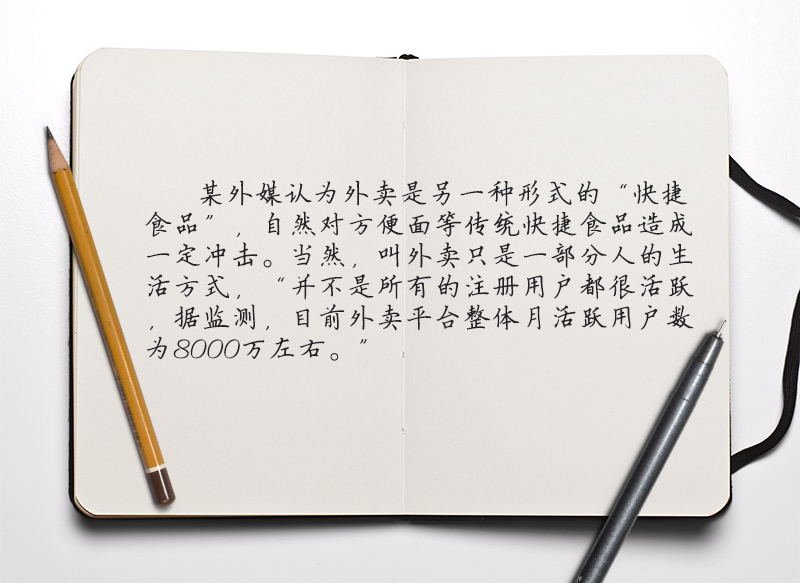 某外媒认为外卖是另一种形式的“快捷
食品”，自然对方便面等传统快捷食品造成
一定冲击。当然，叫外卖只是一部分人的生
活方式，“并不是所有的注册用户都很活跃
，据监测，目前外卖平台整体月活跃用户数
为8000万左右。”